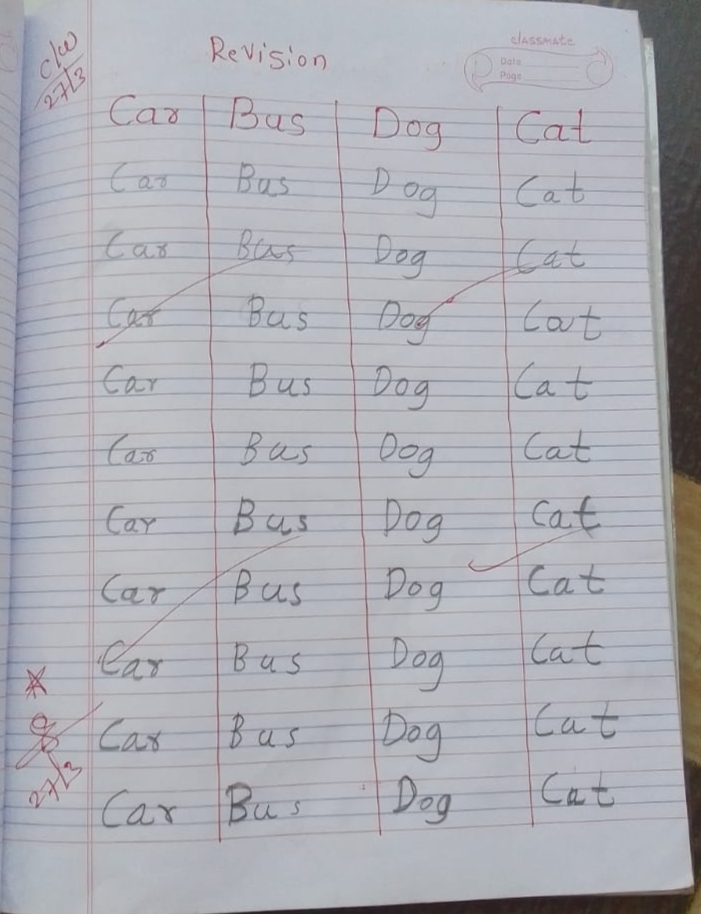 C/W
27/3
Revision
CLASSMATE
Date
Page
Car Bus Dog Cat
Car Bus Dog Cat
Car Bus Dog Cat
Car Bus Dog Cat
Car Bus Dog Cat
Car Bus Dog Cat
Car Bus Dog Cat
Car Bus Dog Cat
Car Bus Dog Cat
Car Bus Dog Cat
Car Bus Dog Cat
27/3